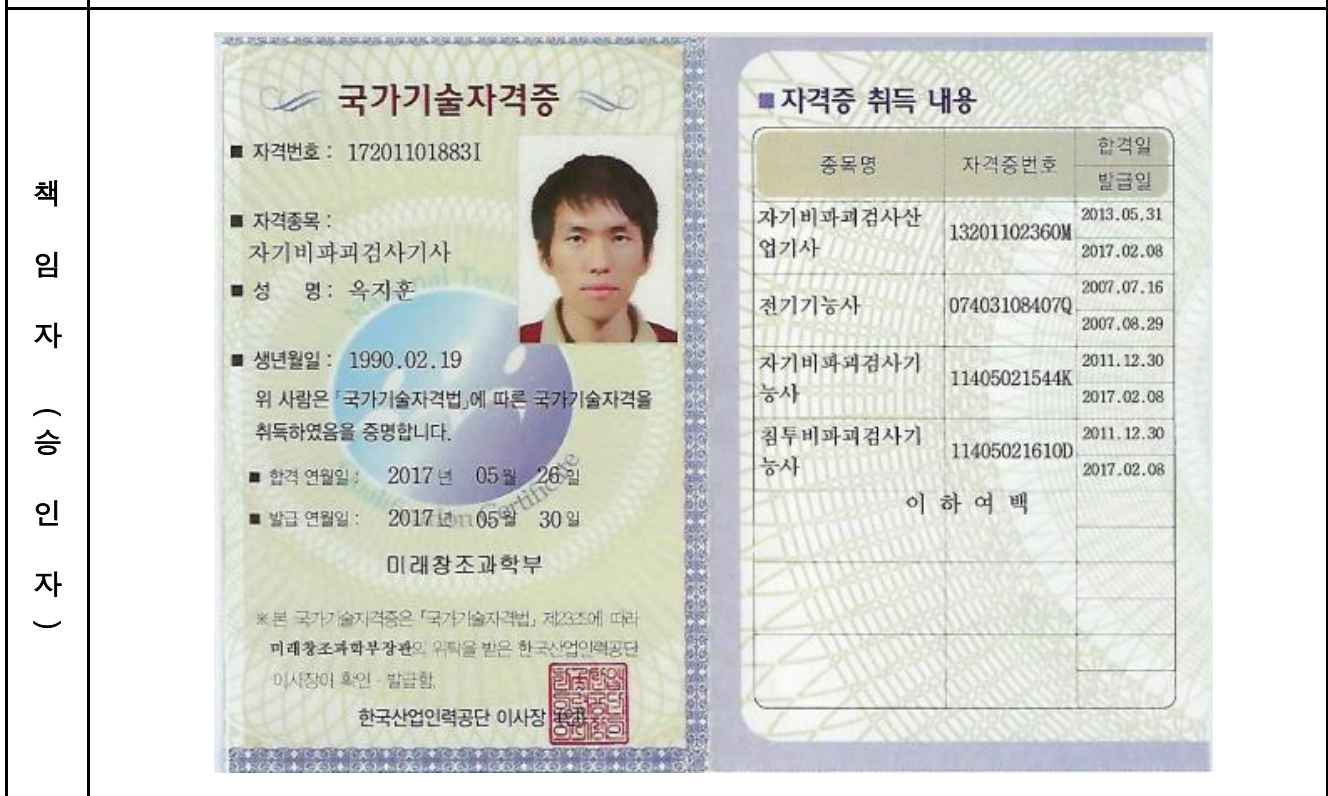 책
임
자
(
승
인
자
)
국가기술자격증
■ 자격번호 : 17201101883I
■ 자격종목 :
자기비파괴검사기사
■ 성 명 : 옥지훈
■ 생년월일 : 1990.02.19
위 사람은 「국가기술자격법」에 따른 국가기술자격을
취득하였음을 증명합니다.
■ 합격 연월일 : 2017 년 05 월 26 일
■ 발급 연월일 : 2017 년 05 월 30 일
미래창조과학부
※ 본 국가기술자격증은 「국가기술자격법」 제23조에 따라
미래창조과학부장관의 위탁을 받은 한국산업인력공단
이사장이 확인 · 발급함.
한국산업인력공단 이사장
■ 자격증 취득 내용
종목명 자격증번호 합격일
발급일
자기비파괴검사산 13201102360M 2013.05.31
업기사 2017.02.08
전기기능사 07403108407Q 2007.07.16
2007.08.29
자기비파괴검사기 11405021544K 2011.12.30
능사 2017.02.08
침투비파괴검사기 11405021610D 2011.12.30
능사 2017.02.08
이 하 여 백